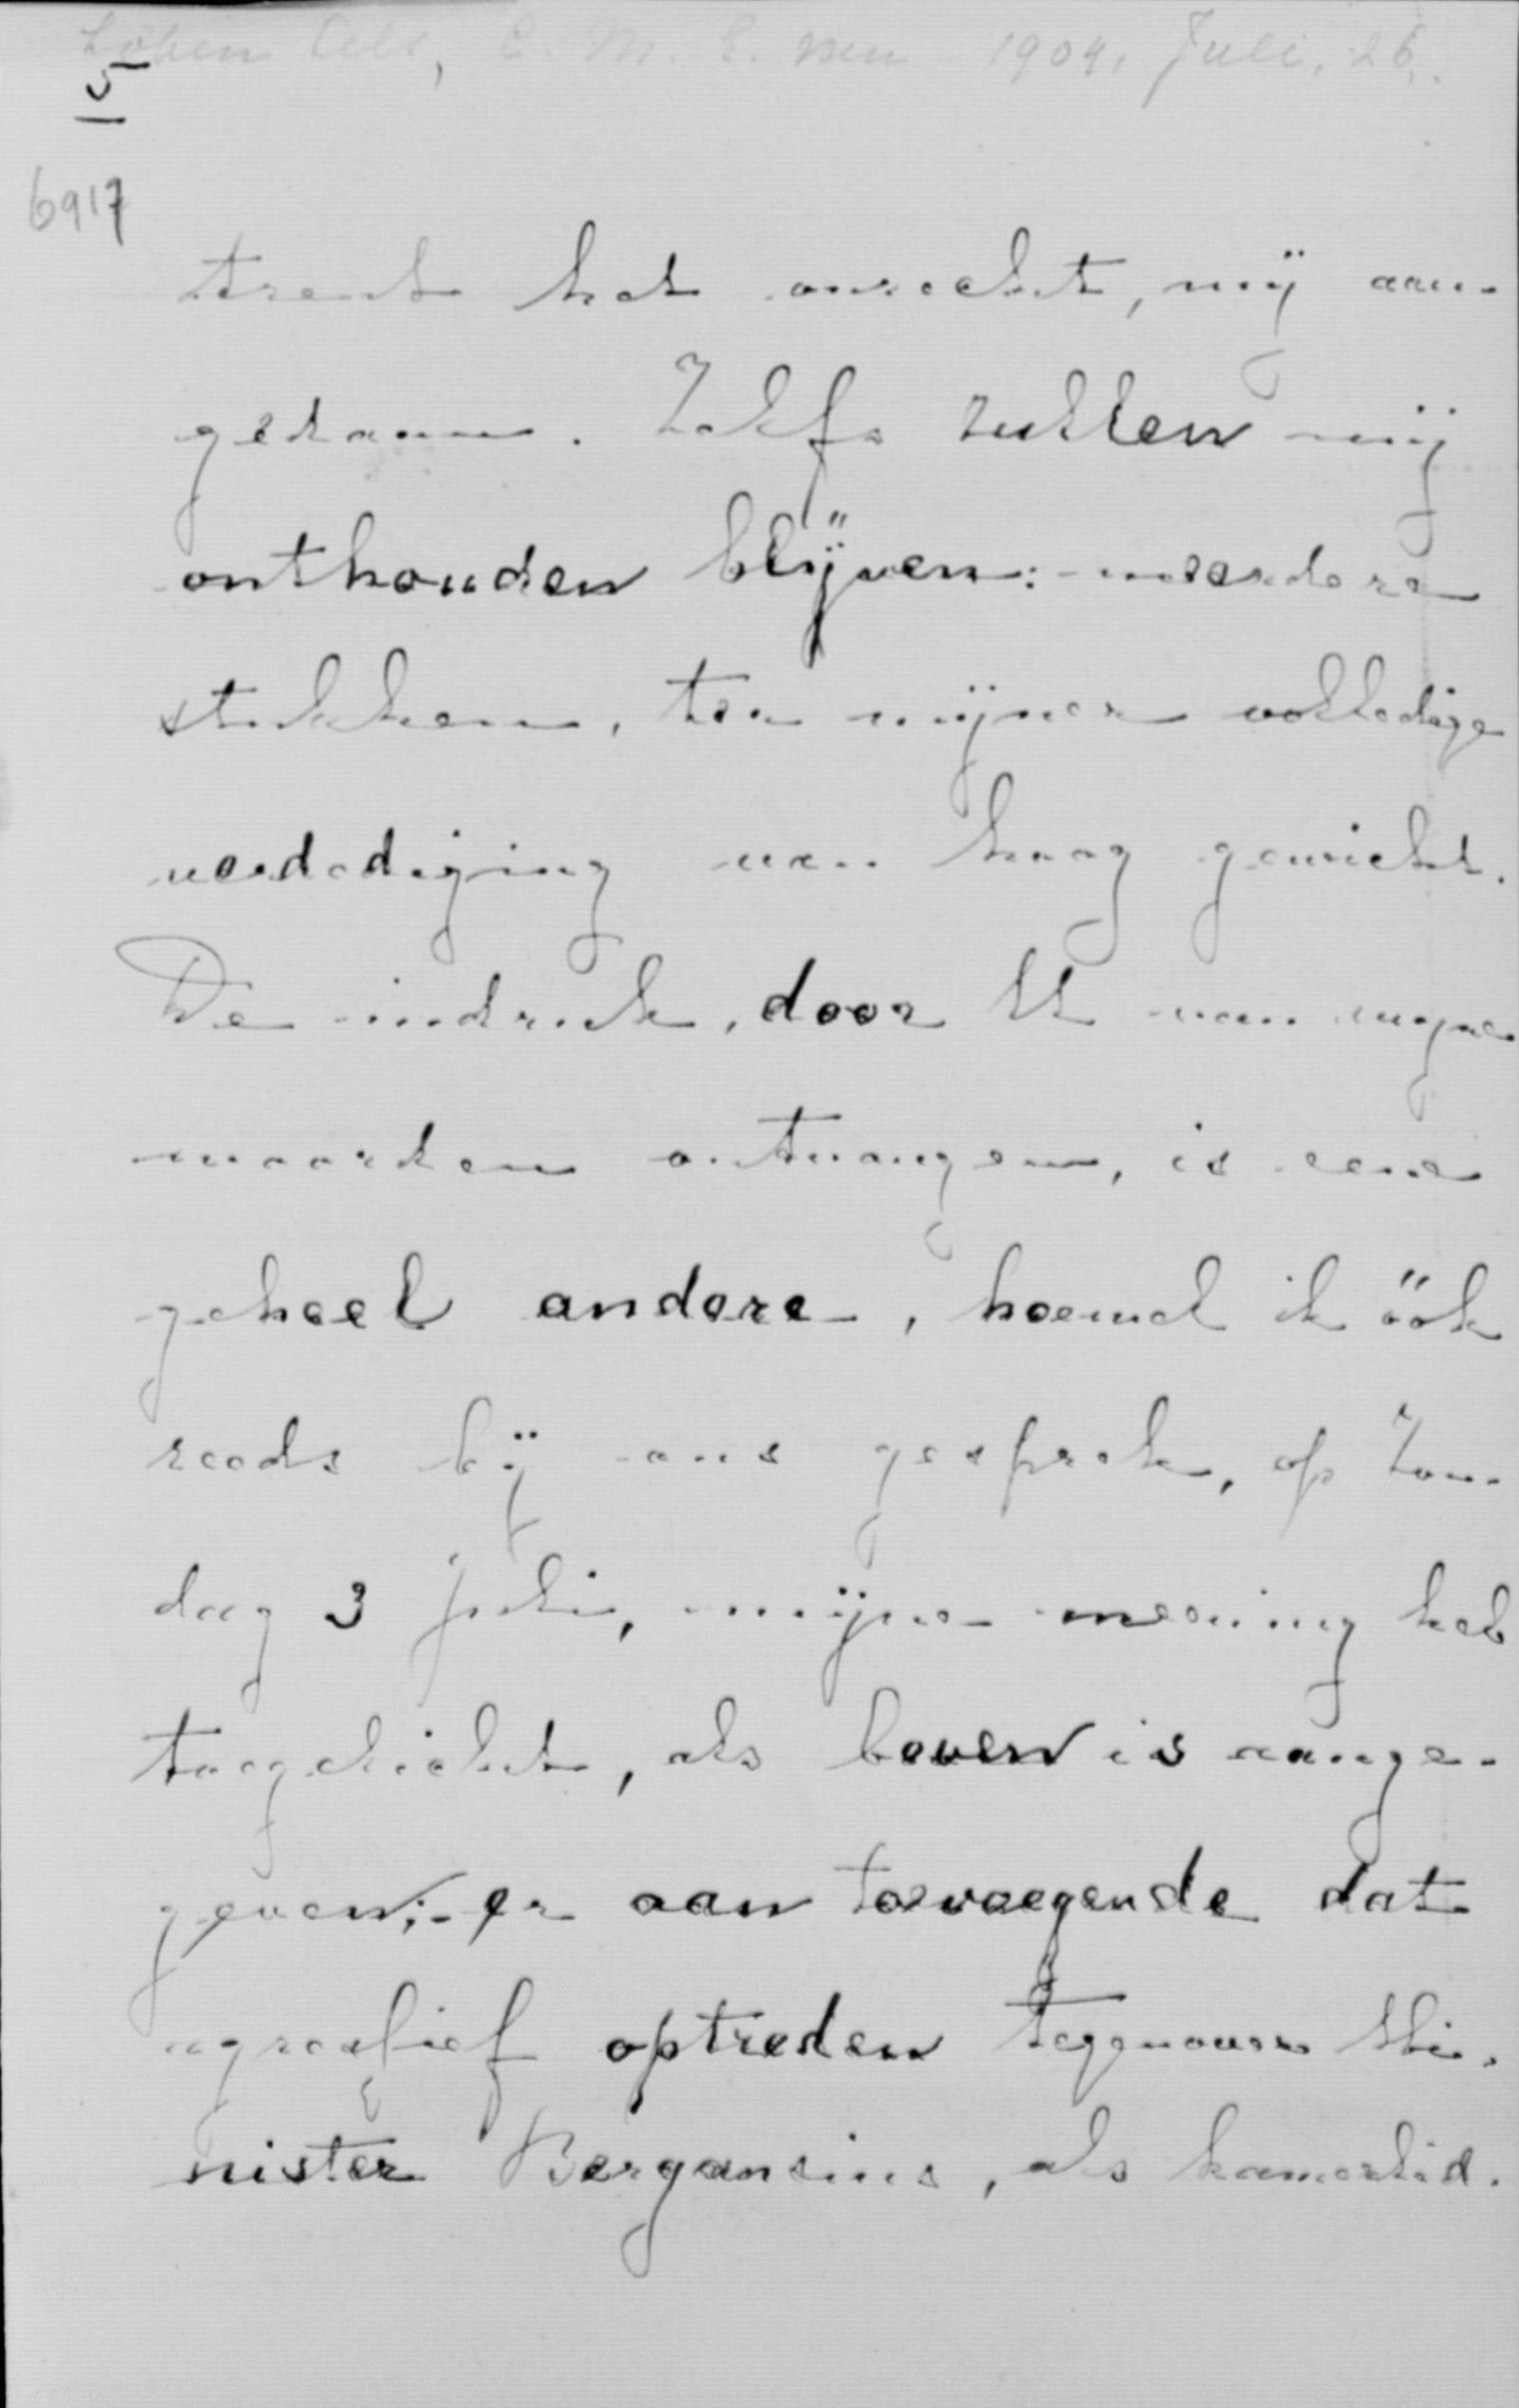 Löben Sels, E. M. E. van 1904, Juli, 26.
5
6917
trent het onrecht, mij aan-
gedaan. Zelfs zullen mij
onthouden blijven: meerdere
stukken, ten mijner volledige
verdediging van hoog gewicht.
De indruk, door U van mijne
woorden ontvangen, is eene
geheel andere, hoewel ik óók
reeds bij ons gesprek, op Zon-
dag 3 Juli, mijne meening heb
toegelicht, als boven is aange-
geven; - er aan toevoegende dat
agressief optreden tegenover Mi-
nister Bergansius, als kamerlid.